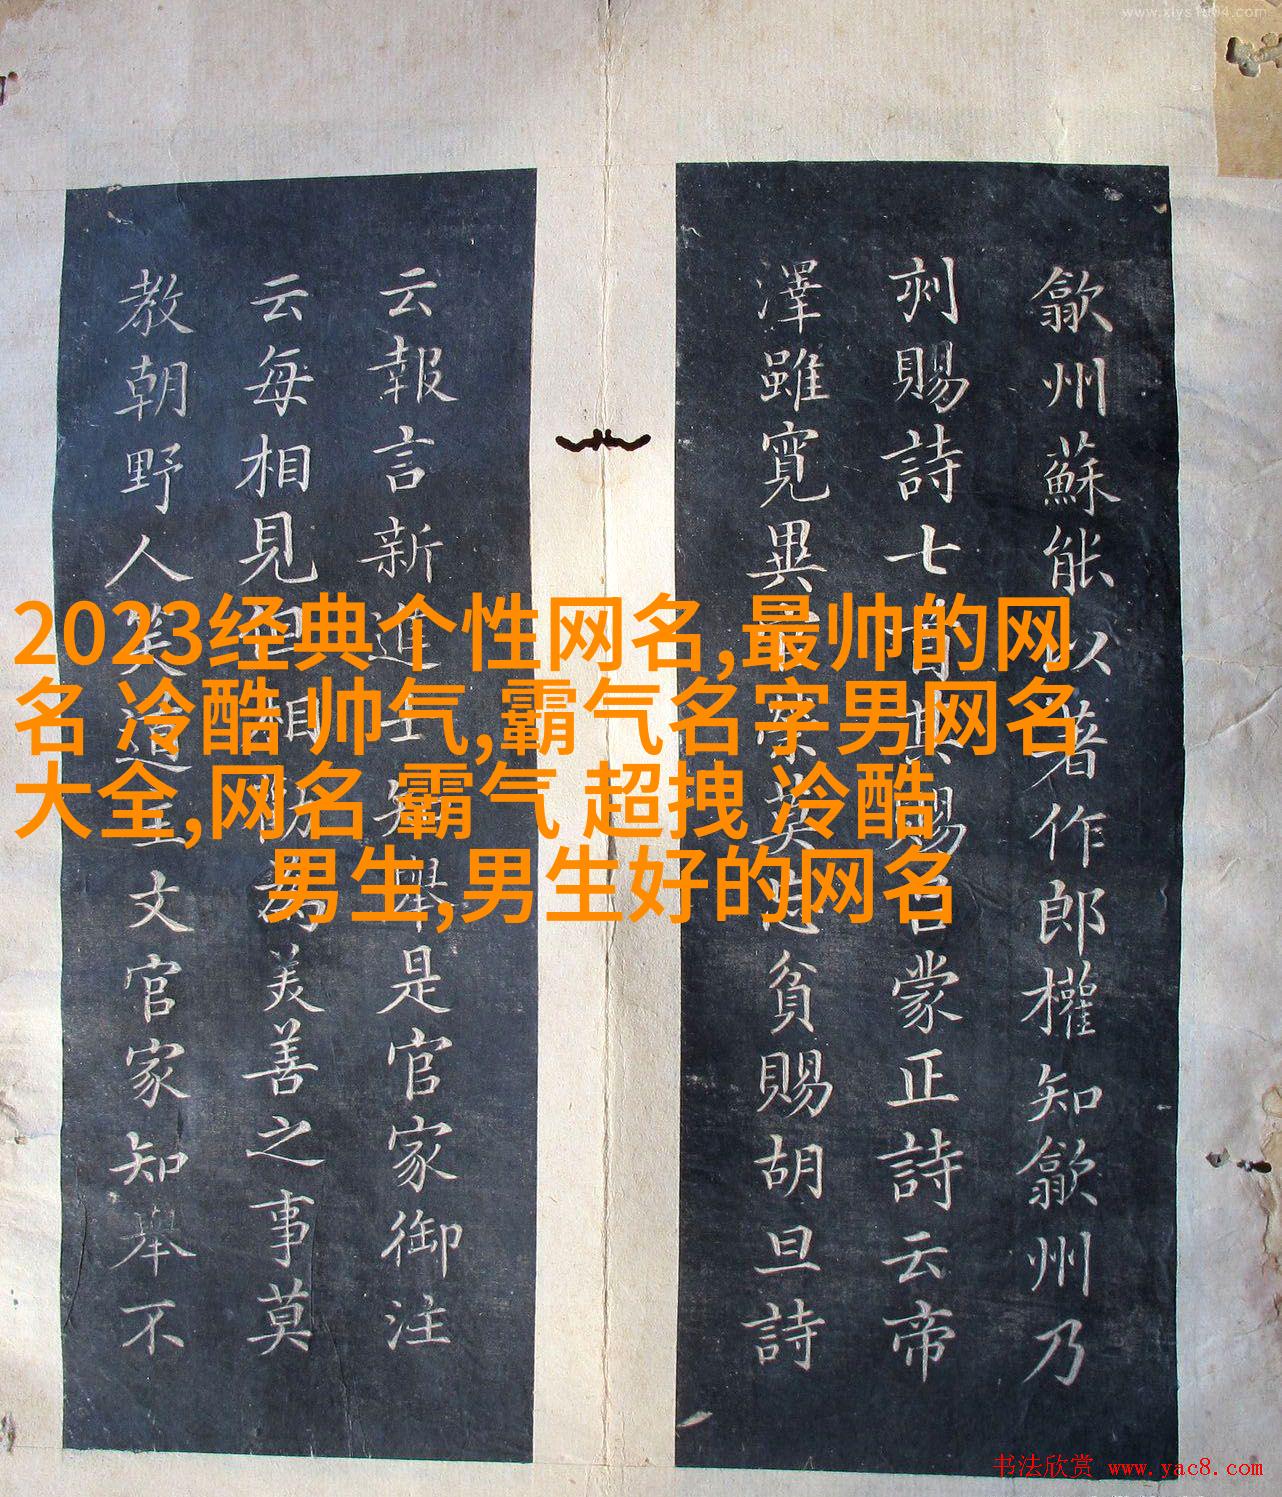 www.xiys1004.com
歙州蘇能以著作郎權知歙州乃
刻賜詩七其賜呂蒙正詩云帝
澤雖寛異榮忘貧賜胡旦詩
云報言新進士知舉是官家御注
云每相見但相為美善之事莫
教朝野人笑道主文官家知舉不
2023经典个性网名,最帅的网
名 冷酷 帅气,霸气名字男网名
大全,网名 霸气 超拽 冷酷
男生,男生好的网名
书法欣赏 www.yac8.com